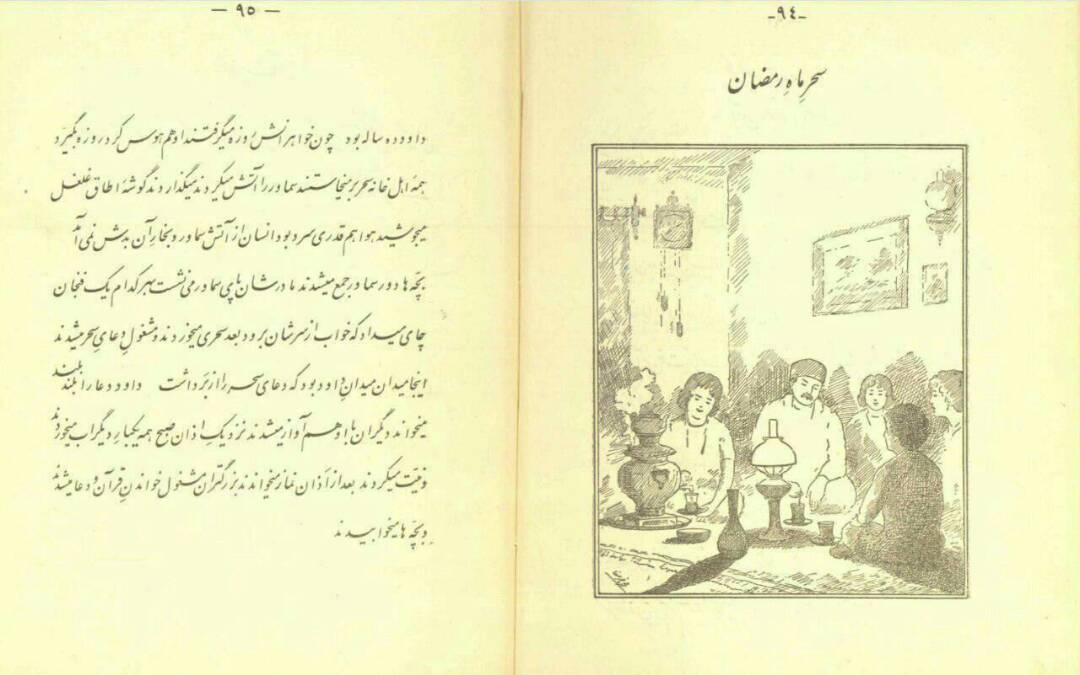 -٩٤-
سحرِ ماهِ رمضان
— ٩٥ —
داود ده ساله بود چون خواهرانش روزه میگرفتند او هم هوس کرد روزه بگیرد
همهٔ اهل خانه سحر برمیخاستند سماور را آتش میکردند میگذاردند گوشهٔ اطاق غلغل
میجوشید هوا هم قدری سرد بود انسان از آتش سماور و بخارِ آن بدش نمی آمد
بچّه ها دور سماور جمع میشدند مادرشان پای سماور می نشست بهر کدام یک فنجان
چای میداد که خواب از سرشان برود بعد سحری میخوردند و مشغولِ دعایِ سحر میشدند
اینجا میدان میدانِ داود بود که دعای سحر را از بَر داشت داود دعا را بلند بلند
میخواند دیگران با او هم آواز میشدند نزدیکِ اذان صبح همه یکبارِ دیگر آب میخوردند
و نیّت میکردند بعد از اَذان نماز میخواندند بزرگتران مشغول خواندنِ قرآن و دعا میشدند
و بچّه ها میخوابیدند